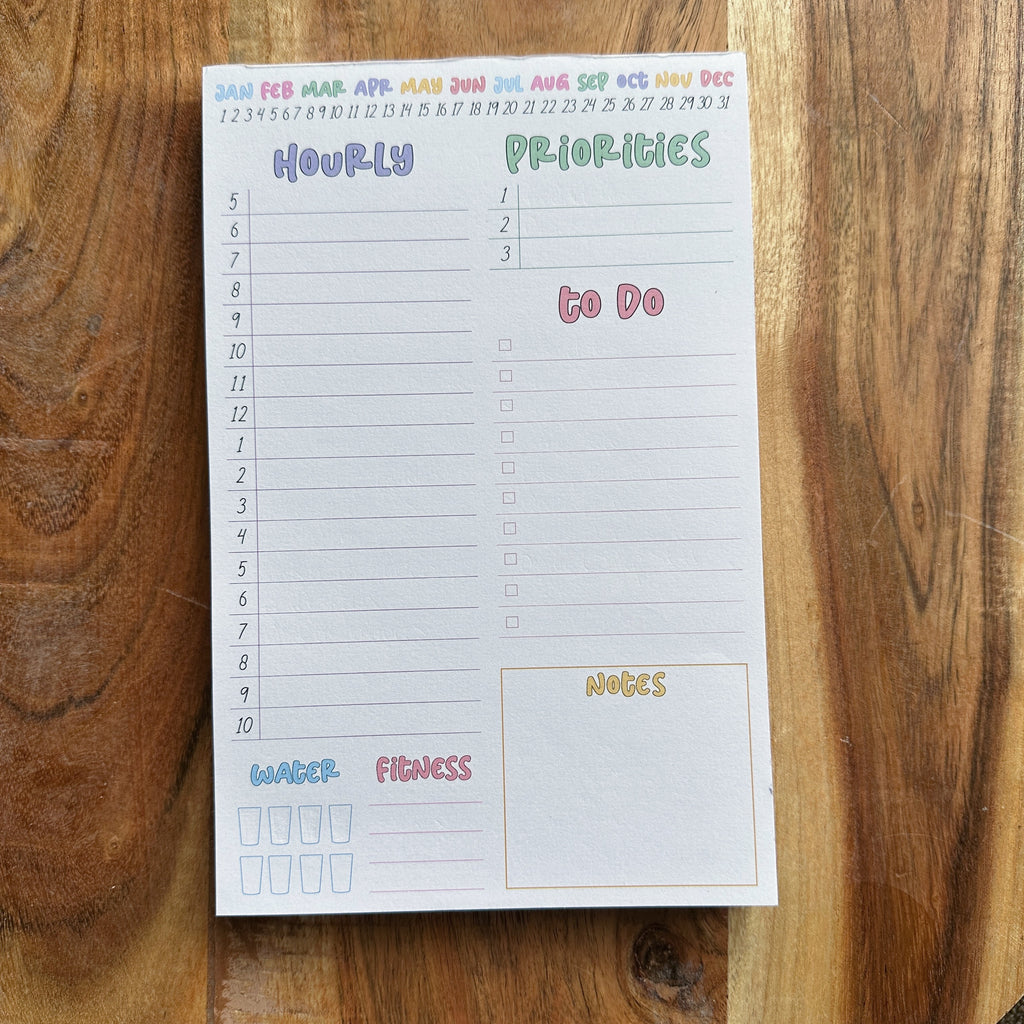 JAN FEB MAR APR MAY JUN JUL AUG SEP OCT NOV DEC
1 2 3 4 5 6 7 8 9 10 11 12 13 14 15 16 17 18 19 20 21 22 23 24 25 26 27 28 29 30 31
HOURLY
5
6
7
8
9
10
11
12
1
2
3
4
5
6
7
8
9
10
PRIORITIES
1
2
3
to Do
NOTES
WATER
FITNESS